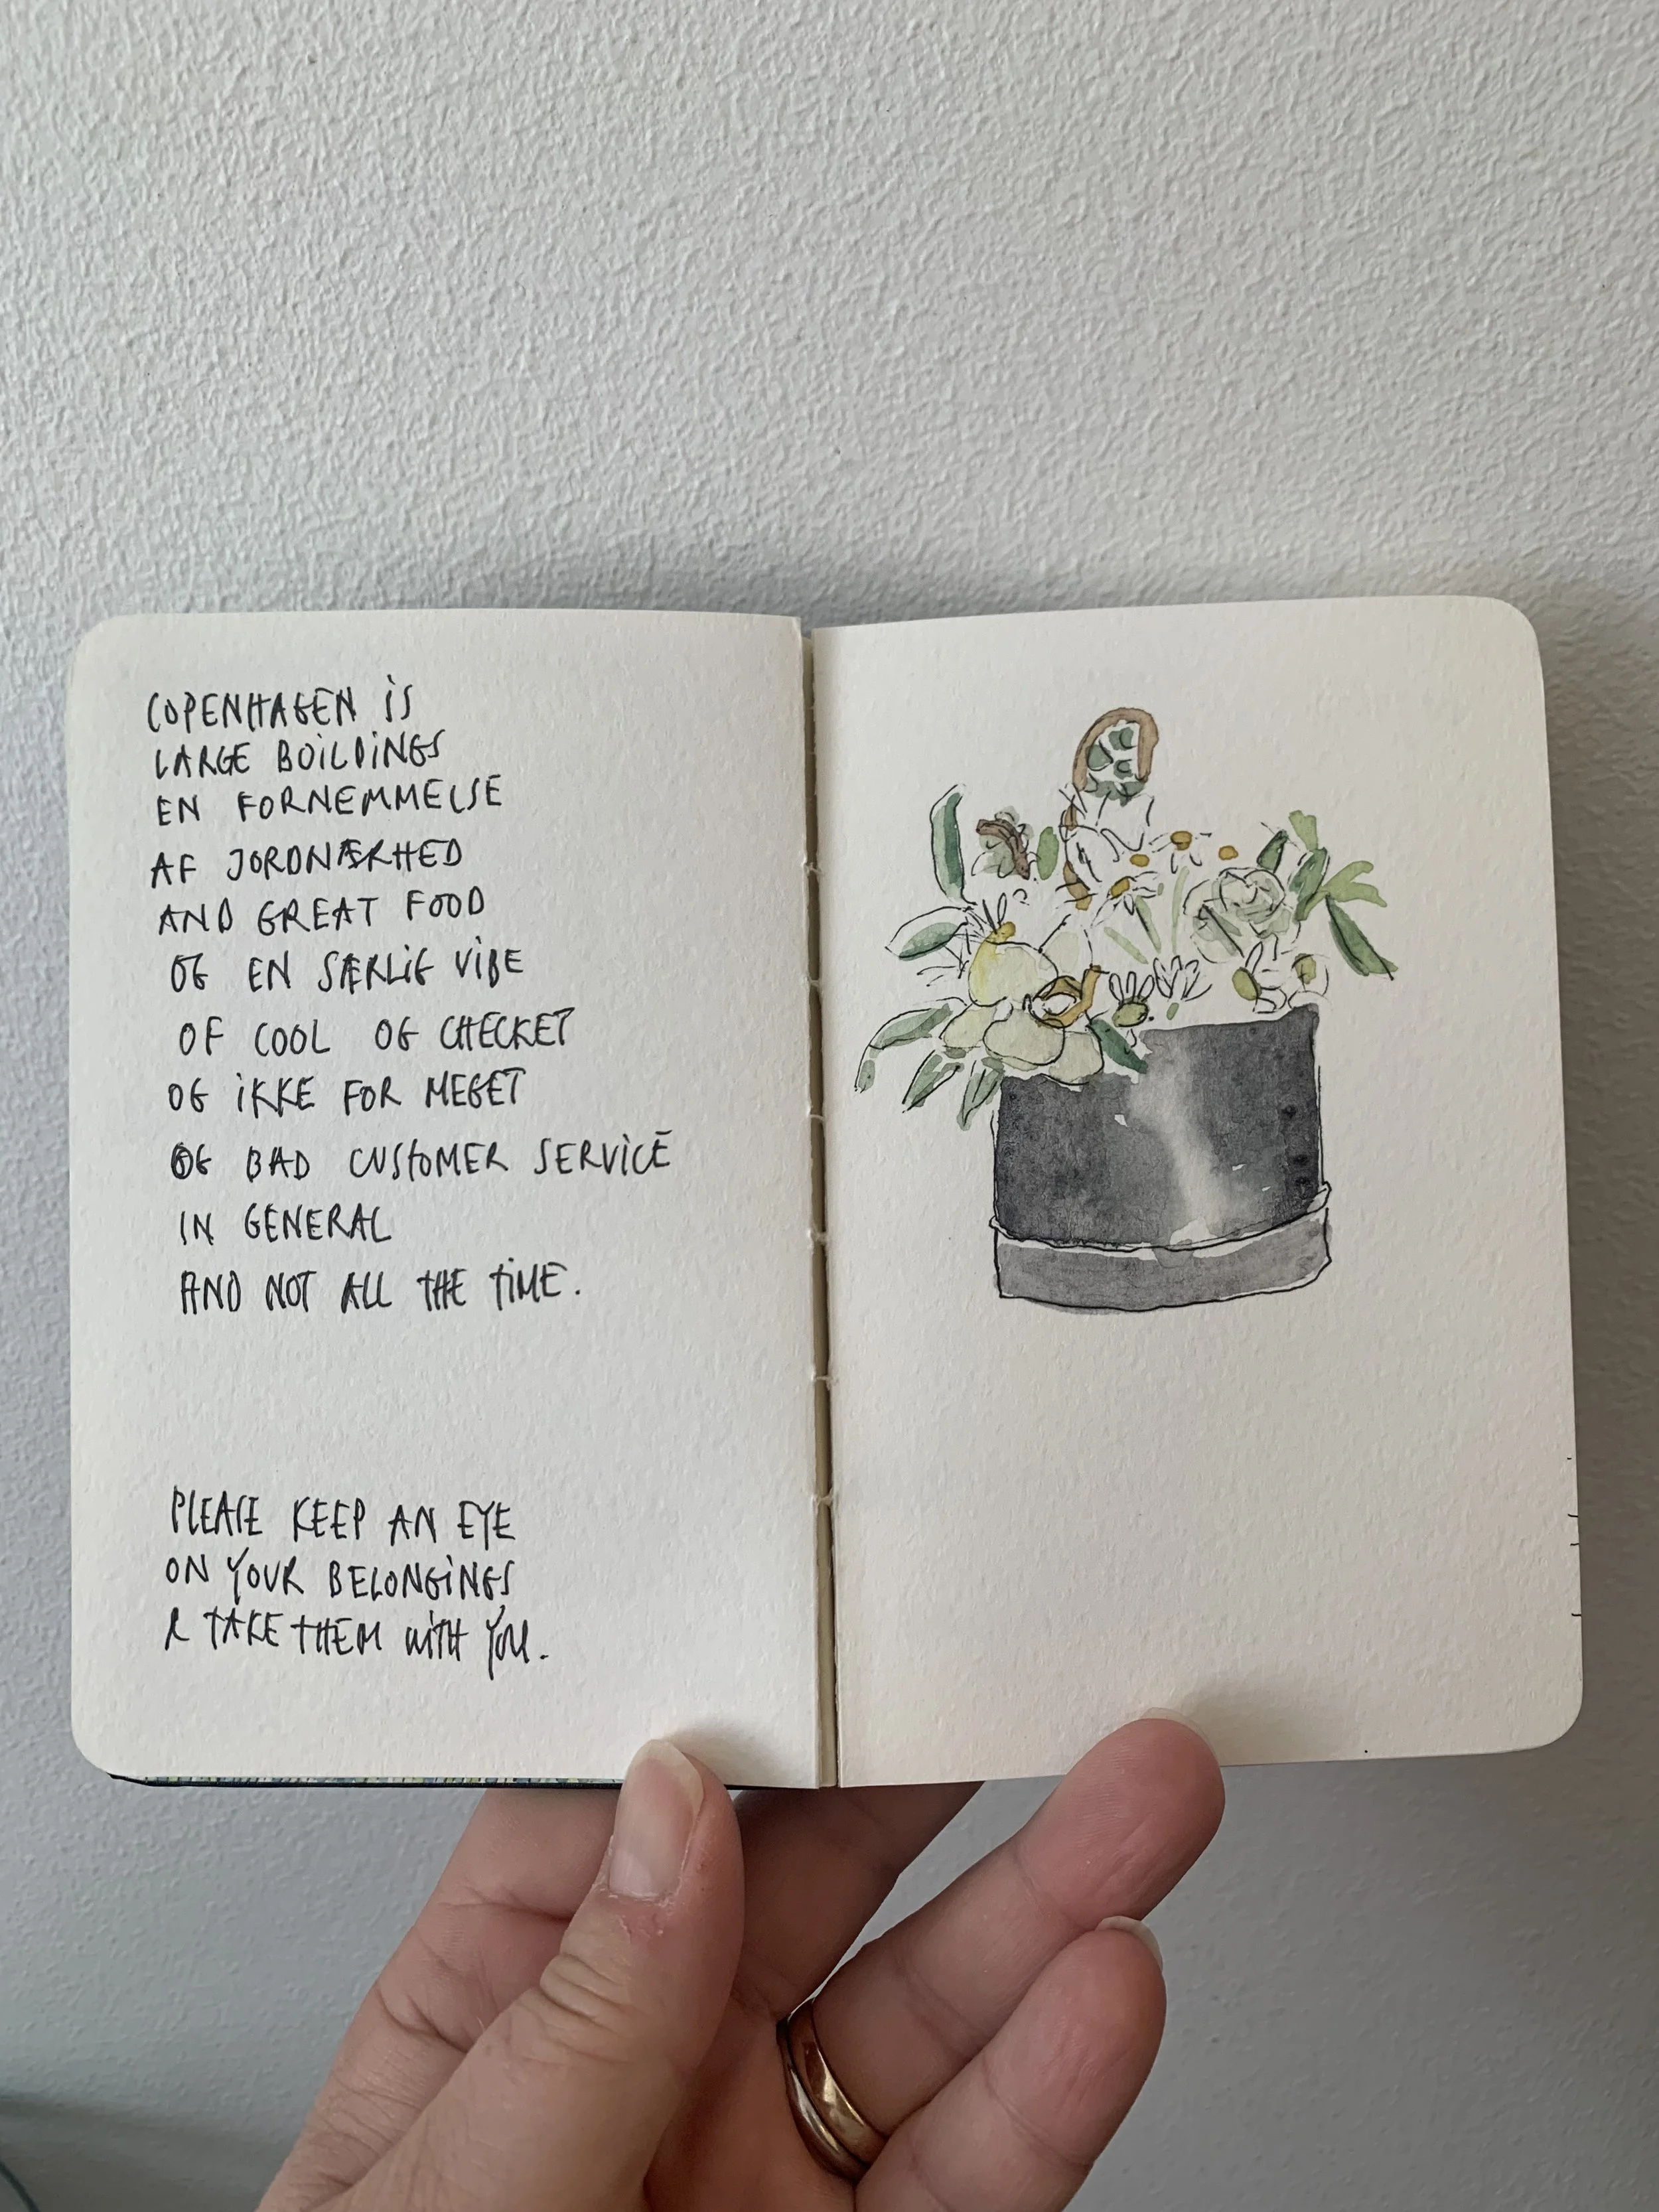 COPENHAGEN iS
LARGE BOiLDiNGS
EN FORNEMMELSE
AF JORDNÆRHED
AND GREAT FOOD
OG EN SÆRLiG ViBE
OF COOL OG CHECKET
OG iKKE FOR MEGET
OG BAD CUSTOMER SERViCE
IN GENERAL
AND NOT ALL THE TiME.
PLEASE KEEP AN EYE
ON YOUR BELONGiNGS
& TAKE THEM WiTH YOU.